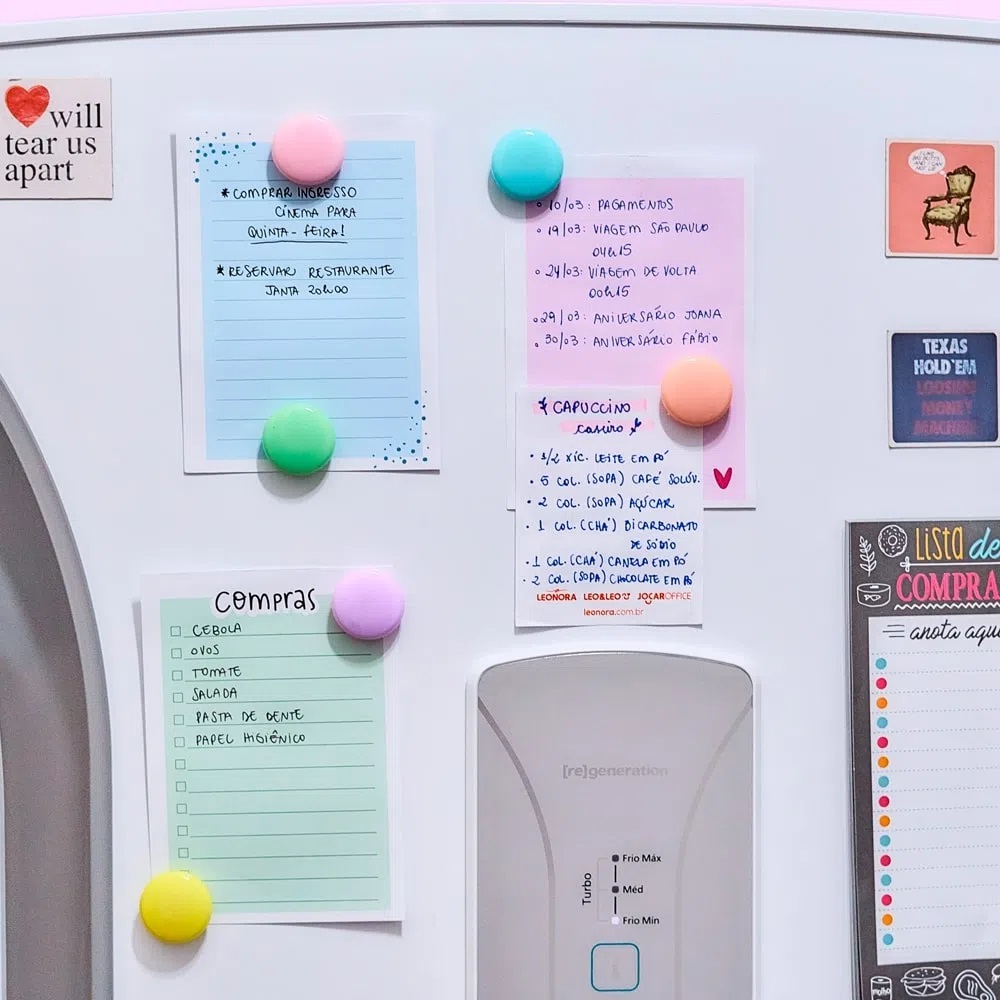 will
tear us
apart
*COMPRAR INGRESSO
CINEMA PARA
QUINTA-FEIRA!
*RESERVAR RESTAURANTE
JANTA 20h00
• 10/03: PAGAMENTOS
• 19/03: VIAGEM SÃO PAULO
04h15
• 24/03: VIAGEM DE VOLTA
00h15
• 29/03: ANIVERSÁRIO JOANA
• 30/03: ANIVERSÁRIO FÁBIO
CAPUCCINO
caseiro
• 1/2 XÍC. LEITE EM PÓ
• 5 COL. (SOPA) CAFÉ SOLÚV.
• 2 COL. (SOPA) AÇÚCAR
• 1 COL. (CHÁ) BICARBONATO
DE SÓDIO
• 1 COL. (CHÁ) CANELA EM PÓ
• 2 COL. (SOPA) CHOCOLATE EM PÓ
LEONORA LEO&LEO JOCAROFFICE
leonora.com.br
I LIKE
BIG BUTTS
AND I CAN
NOT LIE
TEXAS
HOLD'EM
LOOSING
MONEY
MACHINE
compras
CEBOLA
OVOS
TOMATE
SALADA
PASTA DE DENTE
PAPEL HIGIÊNICO
[re]generation
Turbo
Frio Máx
Méd
Frio Mín
Lista de
COMPRA
anota aqu
molho